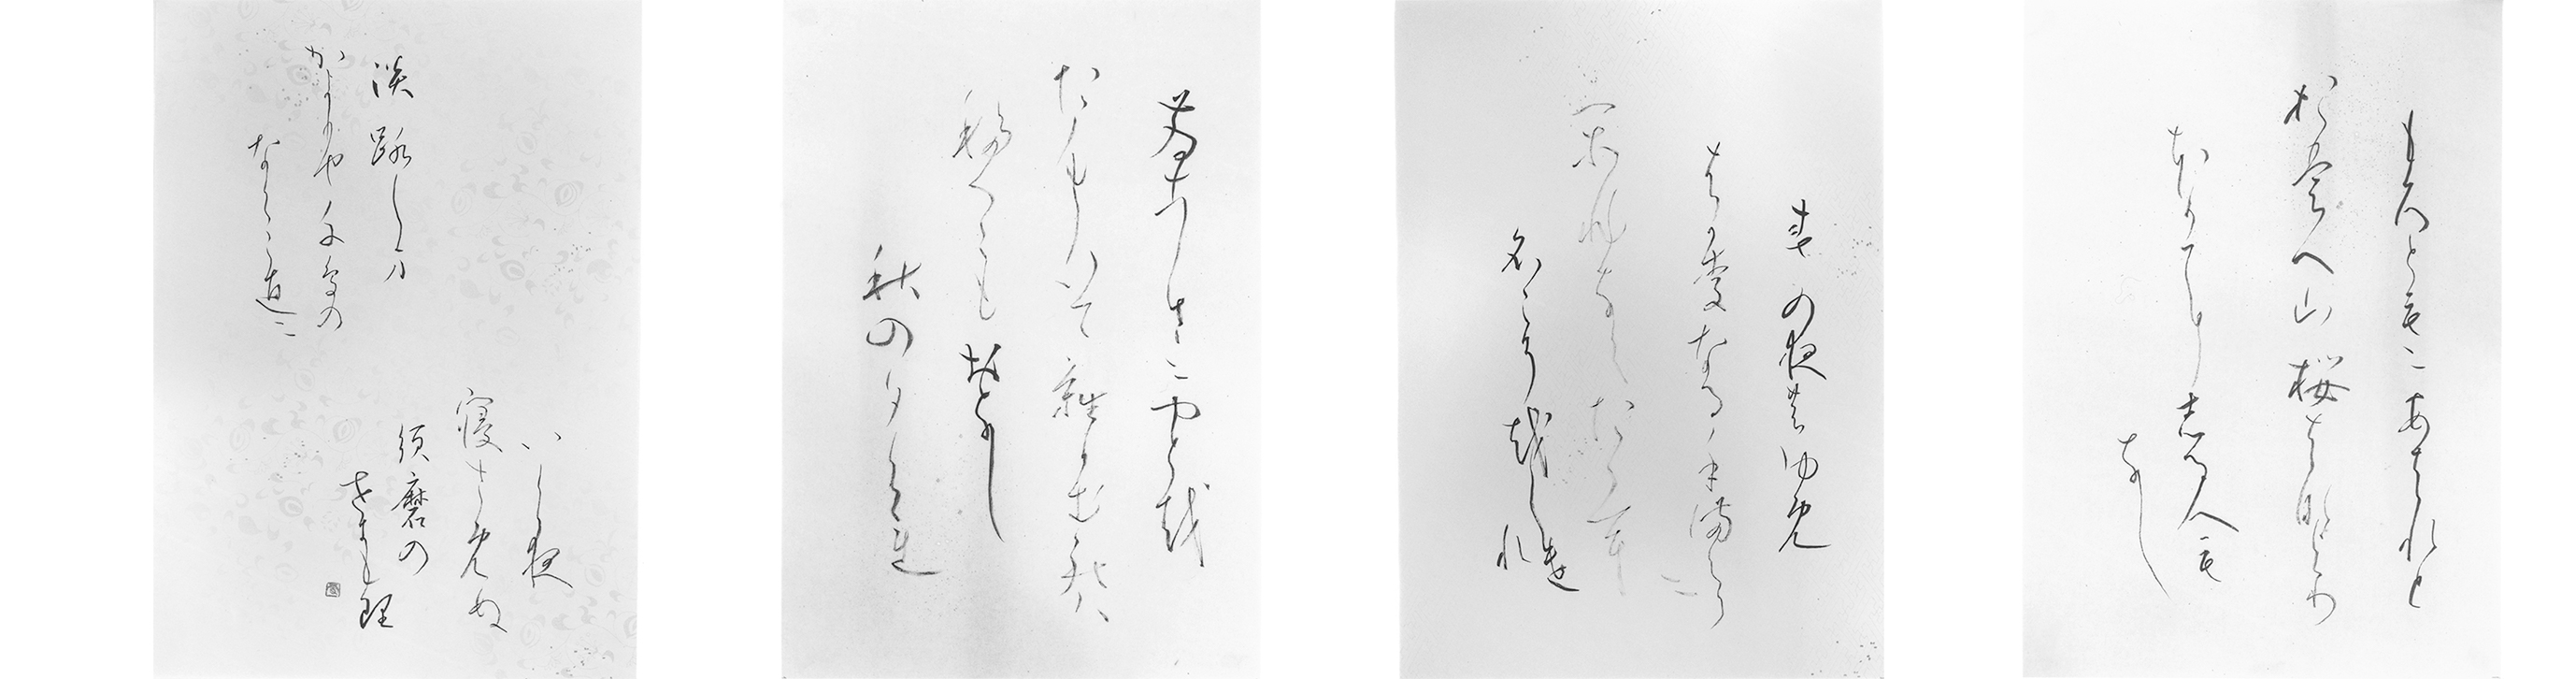 もろともにあはれと
おもへ山桜はなより
ほかにしる人も
なし
春の夜のゆめ
はかりなる手まくらに
かひなくたゝむ
名こそ越しけれ
さひしさにやと越
たちいてゝ難かむれは
いつくもおなし
秋の夕くれ
淡路しま
かよふ千鳥の
なくこゑに
いく夜
寝さめぬ
須磨の
せきも理